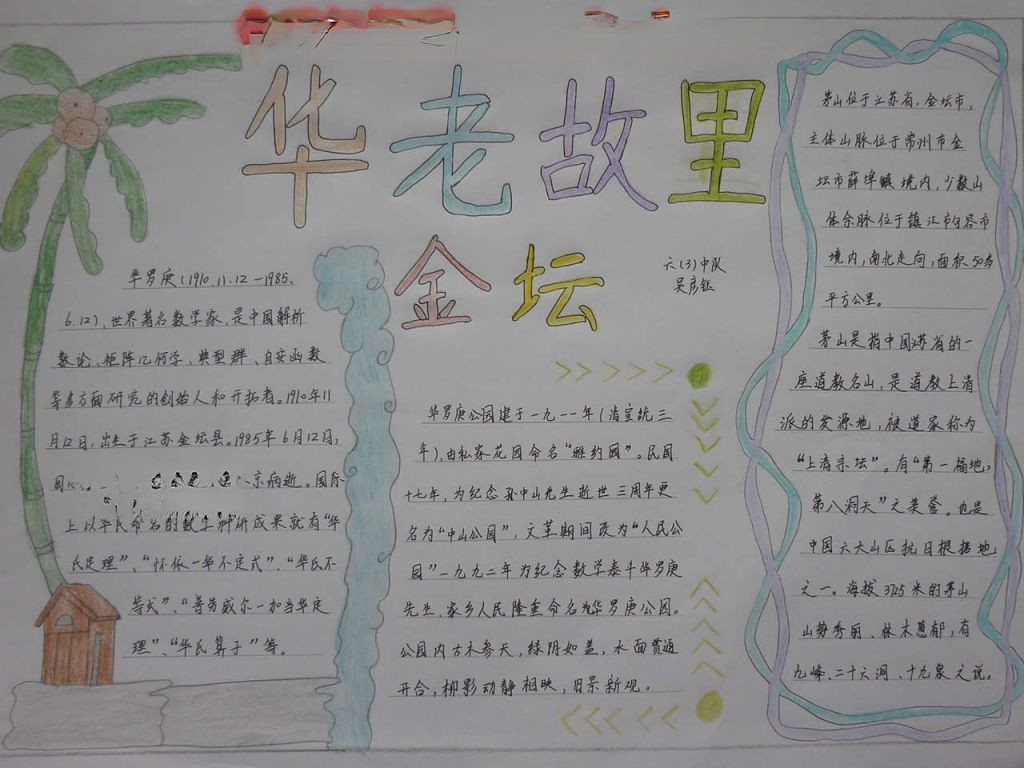 华老故里
金坛
六(3)中队
吴彦钰
华罗庚(1910.11.12—1985.
6.12),世界著名数学家,是中国解析
数论、矩阵几何学、典型群、自安函数
等多方面研究的创始人和开拓者。1910年11
月12日,出生于江苏金坛县。1985年6月12日,
京病逝。国际
上以华氏命名的数学科研成果就有“华
氏定理”、“怀依一华不定式”、“华氏不
等式”、“普劳威尔一加当华定
理”、“华氏算子”等。
华罗庚公园建于一九一一年(清宣统三
年),由私家花园命名“雅约园”。民国
十七年,为纪念孙中山先生逝世三周年更
名为“中山公园”,文革期间改为“人民公
园”一九九二年为纪念数学泰斗华罗庚
先生,家乡人民隆重命名为华罗庚公园。
公园内古木参天,绿阴如盖,水面贯通
开合,柳影动静相映,旧景新观。
茅山位于江苏省,金坛市,
主体山脉位于常州市金
坛市薛埠镇境内,少数山
体余脉位于镇江市句容市
境内,南北走向,面积50多
平方公里。
茅山是指中国江苏省的一
座道教名山,是道教上清
派的发源地,被道家称为
“上清宗坛”。有“第一福地,
第八洞天”之美誉。也是
中国六大山区抗日根据地
之一。海拔372.5米的茅山
山势秀丽、林木葱郁,有
九峰、二十六洞、十九泉之说。